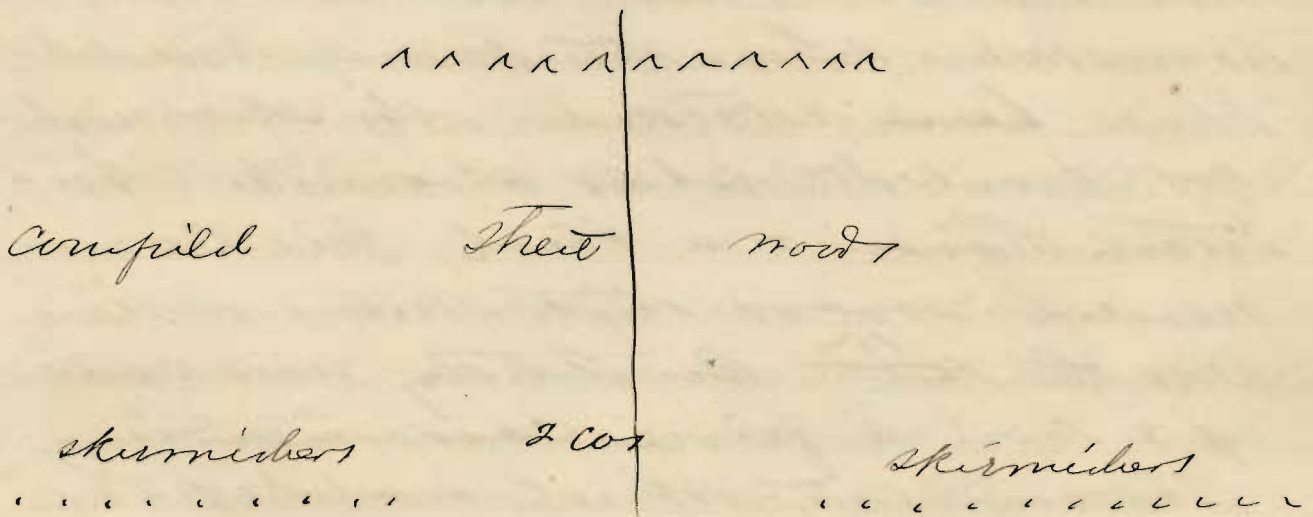 cornfield street woods
skirmishers 2 cos skirmishers